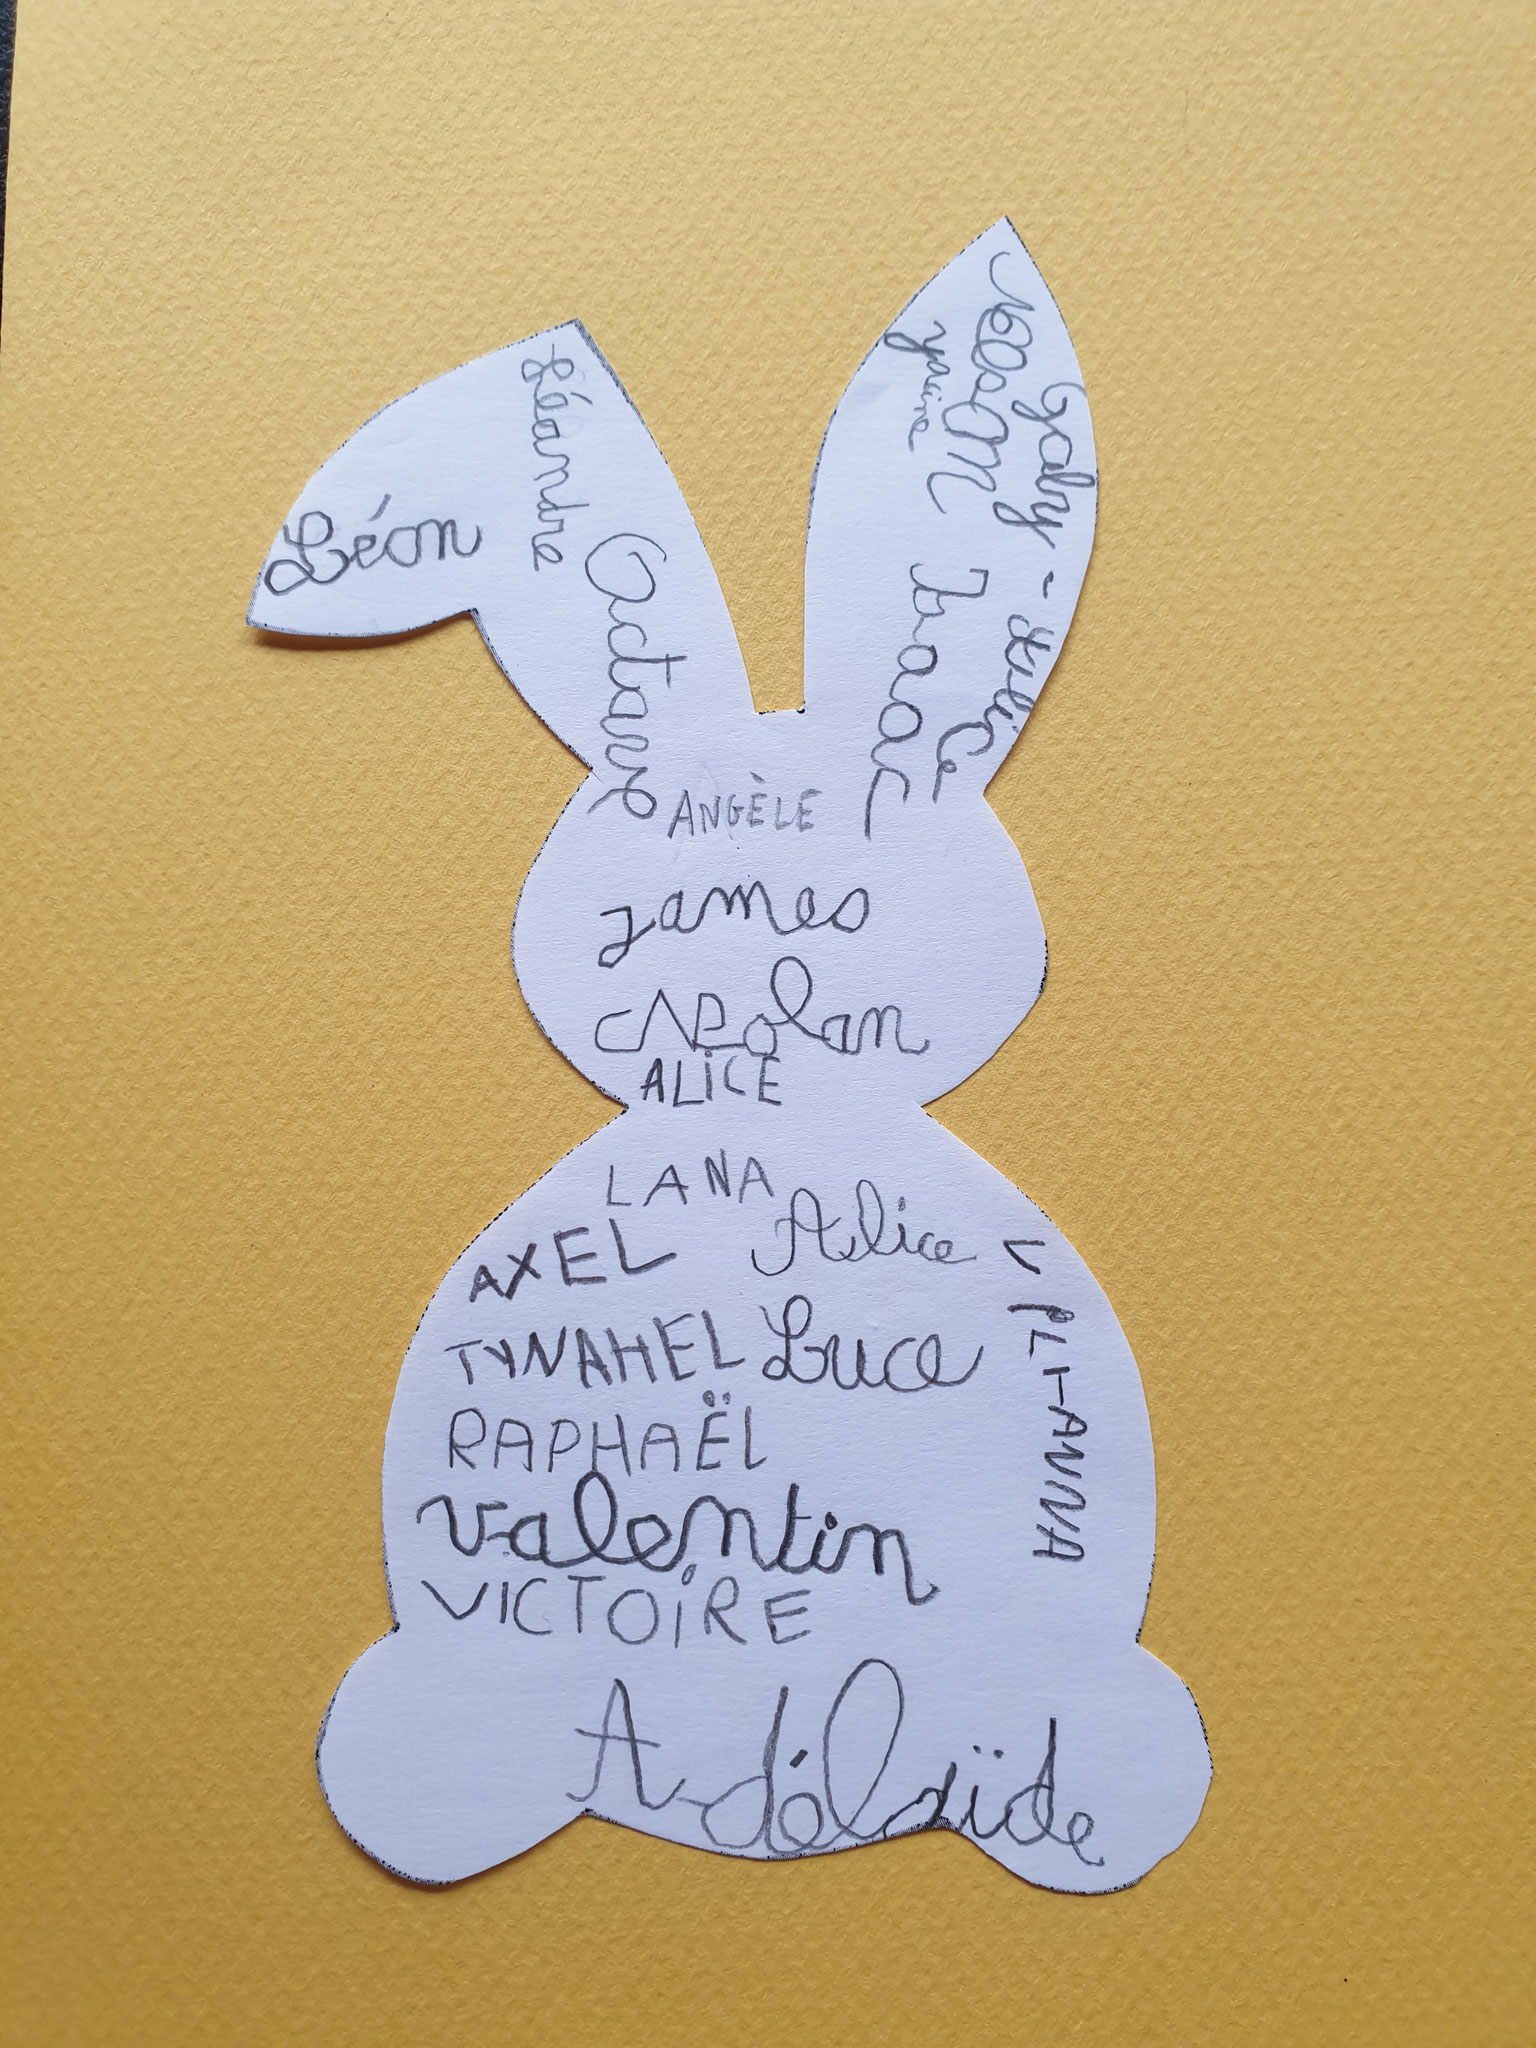 Léon
Léandre
Octave
Gaby-Alice
Yacine
Isaac
ANGÈLE
James
Nolan
ALICE
LANA
AXEL Alice
TYNAHEL Luce
RAPHAËL
Valentin
VICTOIRE
Adélaïde